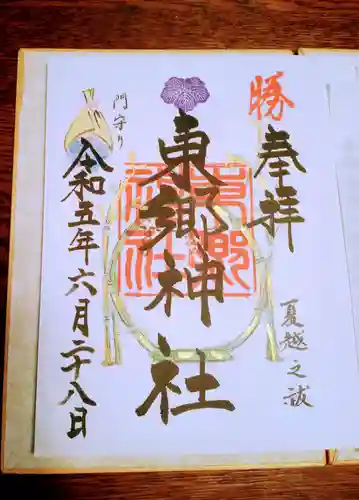 勝
奉拝
夏越之祓
東郷神社
東郷神社
門守り
令和五年六月二十八日